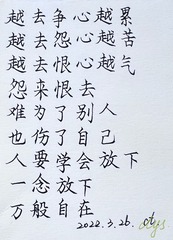 越去争心越累
越去怨心越苦
越去恨心越气
怨来恨去
难为了别人
也伤了自己
人要学会放下
一念放下
万般自在
2022.3.26.